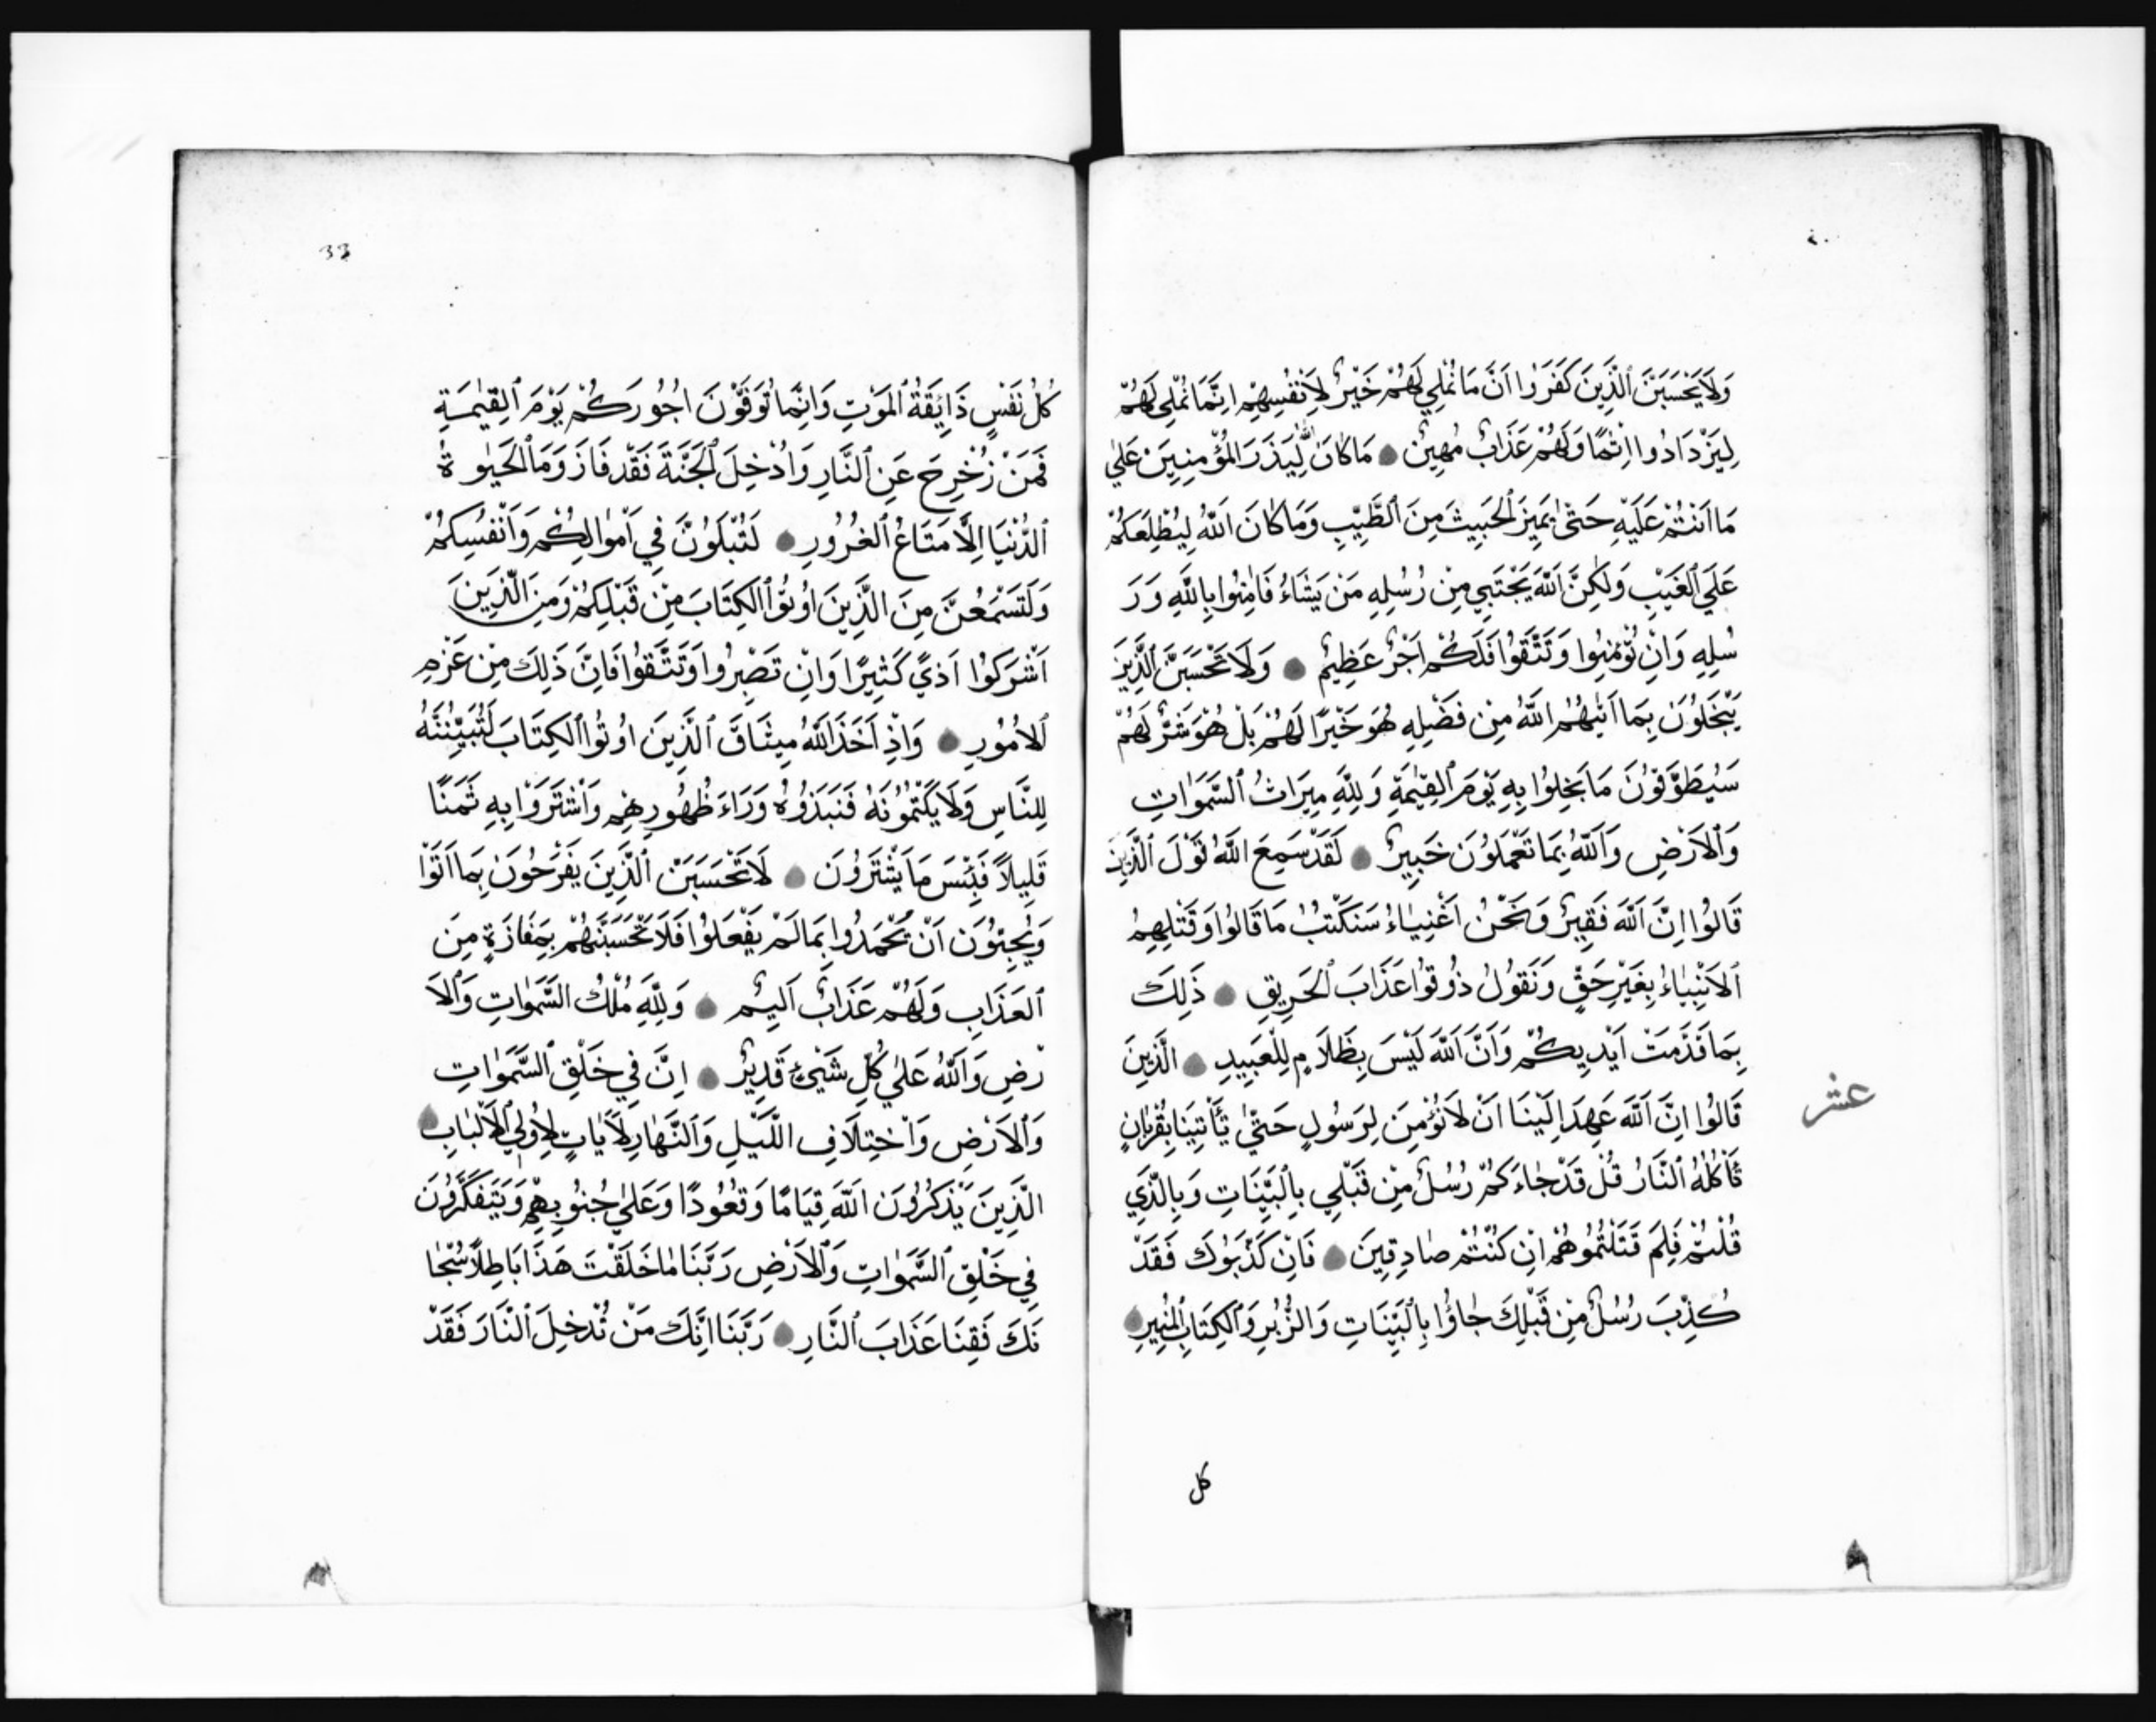 وَلَا يَحْسَبَنَّ ٱلَّذِينَ كَفَرُوا اَنَّ مَا نُمْلِي لَهُمْ خَيْرٌ لِاَنْفُسِهِمْ اِنَّمَا نُمْلِي لَهُمْ
لِيَزْدَادُوا اِثْمًا وَلَهُمْ عَذَابٌ مُهِينٌ مَا كَانَ اللّٰهُ لِيَذَرَ المُؤْمِنِينَ عَلٰي
مَا اَنْتُمْ عَلَيْهِ حَتّٰي يَمِيزَ ٱلْخَبِيثَ مِنَ ٱلطَّيِّبِ وَمَا كَانَ اَللّٰهُ لِيُطْلِعَكُمْ
عَلَي ٱلْغَيْبِ وَلٰكِنَّ اَللّٰهَ يَجْتَبِي مِنْ رُسُلِهِ مَنْ يَشَاءُ فَاٰمِنُوا بِاللّٰهِ وَرَ
سُلِهِ وَاِنْ تُؤْمِنُوا وَتَتَّقُوا فَلَكُمْ اَجْرٌ عَظِيمٌ وَلَا تَحْسَبَنَّ ٱلَّذِينَ
يَبْخَلُونَ بِمَا اٰتٰيهُمُ اللّٰهُ مِنْ فَضْلِهِ هُوَ خَيْرًا لَهُمْ بَلْ هُوَ شَرٌّ لَهُمْ
سَيُطَوَّقُونَ مَا بَخِلُوا بِهِ يَوْمَ ٱلْقِيٰمَةِ وَلِلّٰهِ مِيرَاثُ ٱلسَّمٰوَاتِ
وَٱلْاَرْضِ وَاَللّٰهُ بِمَا تَعْمَلُونَ خَبِيرٌ لَقَدْ سَمِعَ اللّٰهُ قَوْلَ ٱلَّذِينَ
قَالُوا اِنَّ اَللّٰهَ فَقِيرٌ وَنَحْنُ اَغْنِيَاءُ سَنَكْتُبُ مَا قَالُوا وَقَتْلِهِمُ
ٱلْاَنْبِيَاءَ بِغَيْرِ حَقٍّ وَنَقُولُ ذُوقُوا عَذَابَ ٱلْحَرِيقِ ذٰلِكَ
بِمَا قَدَّمَتْ اَيْدِيكُمْ وَاَنَّ اَللّٰهَ لَيْسَ بِظَلَّامٍ لِلْعَبِيدِ الَّذِينَ
قَالُوا اِنَّ اَللّٰهَ عَهِدَ اِلَيْنَا اَنْ لَا نُؤْمِنَ لِرَسُولٍ حَتّٰي يَأْتِيَنَا بِقُرْبَانٍ
تَأْكُلُهُ ٱلنَّارُ قُلْ قَدْ جَاءَكُمْ رُسُلٌ مِنْ قَبْلِي بِالْبَيِّنَاتِ وَبِالَّذِي
قُلْتُمْ فَلِمَ قَتَلْتُمُوهُمْ اِنْ كُنْتُمْ صَادِقِينَ فَاِنْ كَذَّبُوكَ فَقَدْ
كُذِّبَ رُسُلٌ مِنْ قَبْلِكَ جَاؤُا بِالْبَيِّنَاتِ وَالزُّبُرِ وَٱلْكِتَابِ المُنِيرِ
عشر
كل
33
كُلُّ نَفْسٍ ذَايِٕقَةُ ٱلْمَوْتِ وَاِنَّمَا تُوَفَّوْنَ اُجُورَكُمْ يَوْمَ ٱلْقِيٰمَةِ
فَمَنْ زُحْزِحَ عَنِ ٱلنَّارِ وَاُدْخِلَ ٱلْجَنَّةَ فَقَدْ فَازَ وَمَا ٱلْحَيٰوةُ
ٱلدُّنْيَا اِلَّا مَتَاعُ ٱلْغُرُورِ لَتُبْلَوُنَّ فِي اَمْوَالِكُمْ وَاَنْفُسِكُمْ
وَلَتَسْمَعُنَّ مِنَ الَّذِينَ اُوتُوا ٱلْكِتَابَ مِنْ قَبْلِكُمْ وَمِنَ الَّذِينَ
اَشْرَكُوا اَذًي كَثِيرًا وَاِنْ تَصْبِرُوا وَتَتَّقُوا فَاِنَّ ذٰلِكَ مِنْ عَزْمِ
ٱلْاُمُورِ وَاِذْ اَخَذَ اللّٰهُ مِيثَاقَ ٱلَّذِينَ اُوتُوا ٱلْكِتَابَ لَتُبَيِّنُنَّهُ
لِلنَّاسِ وَلَا يَكْتُمُونَهُ فَنَبَذُوهُ وَرَاءَ ظُهُورِهِمْ وَاَشْتَرَوْا بِهِ ثَمَنًا
قَلِيلًا فَبِئْسَ مَا يَشْتَرُونَ لَا تَحْسَبَنَّ ٱلَّذِينَ يَفْرَحُونَ بِمَا اَتَوْا
وَيُحِبُّونَ اَنْ يُحْمَدُوا بِمَا لَمْ يَفْعَلُوا فَلَا تَحْسَبَنَّهُمْ بِمَفَازَةٍ مِنَ
ٱلْعَذَابِ وَلَهُمْ عَذَابٌ اَلِيمٌ وَلِلّٰهِ مُلْكُ السَّمٰوَاتِ وَٱلْاَ
رْضِ وَاَللّٰهُ عَلٰي كُلِّ شَيْءٍ قَدِيرٌ اِنَّ فِي خَلْقِ ٱلسَّمٰوَاتِ
وَٱلْاَرْضِ وَاخْتِلَافِ اللَّيْلِ وَٱلنَّهَارِ لَاٰيَاتٍ لِاُولِي ٱلْاَلْبَابِ
الَّذِينَ يَذْكُرُونَ اَللّٰهَ قِيَامًا وَقُعُودًا وَعَلٰي جُنُوبِهِمْ وَيَتَفَكَّرُونَ
فِي خَلْقِ ٱلسَّمٰوَاتِ وَٱلْاَرْضِ رَبَّنَا مَا خَلَقْتَ هَذَا بَاطِلًا سُبْحَا
نَكَ فَقِنَا عَذَابَ ٱلنَّارِ رَبَّنَا اِنَّكَ مَنْ تُدْخِلِ ٱلنَّارَ فَقَدْ